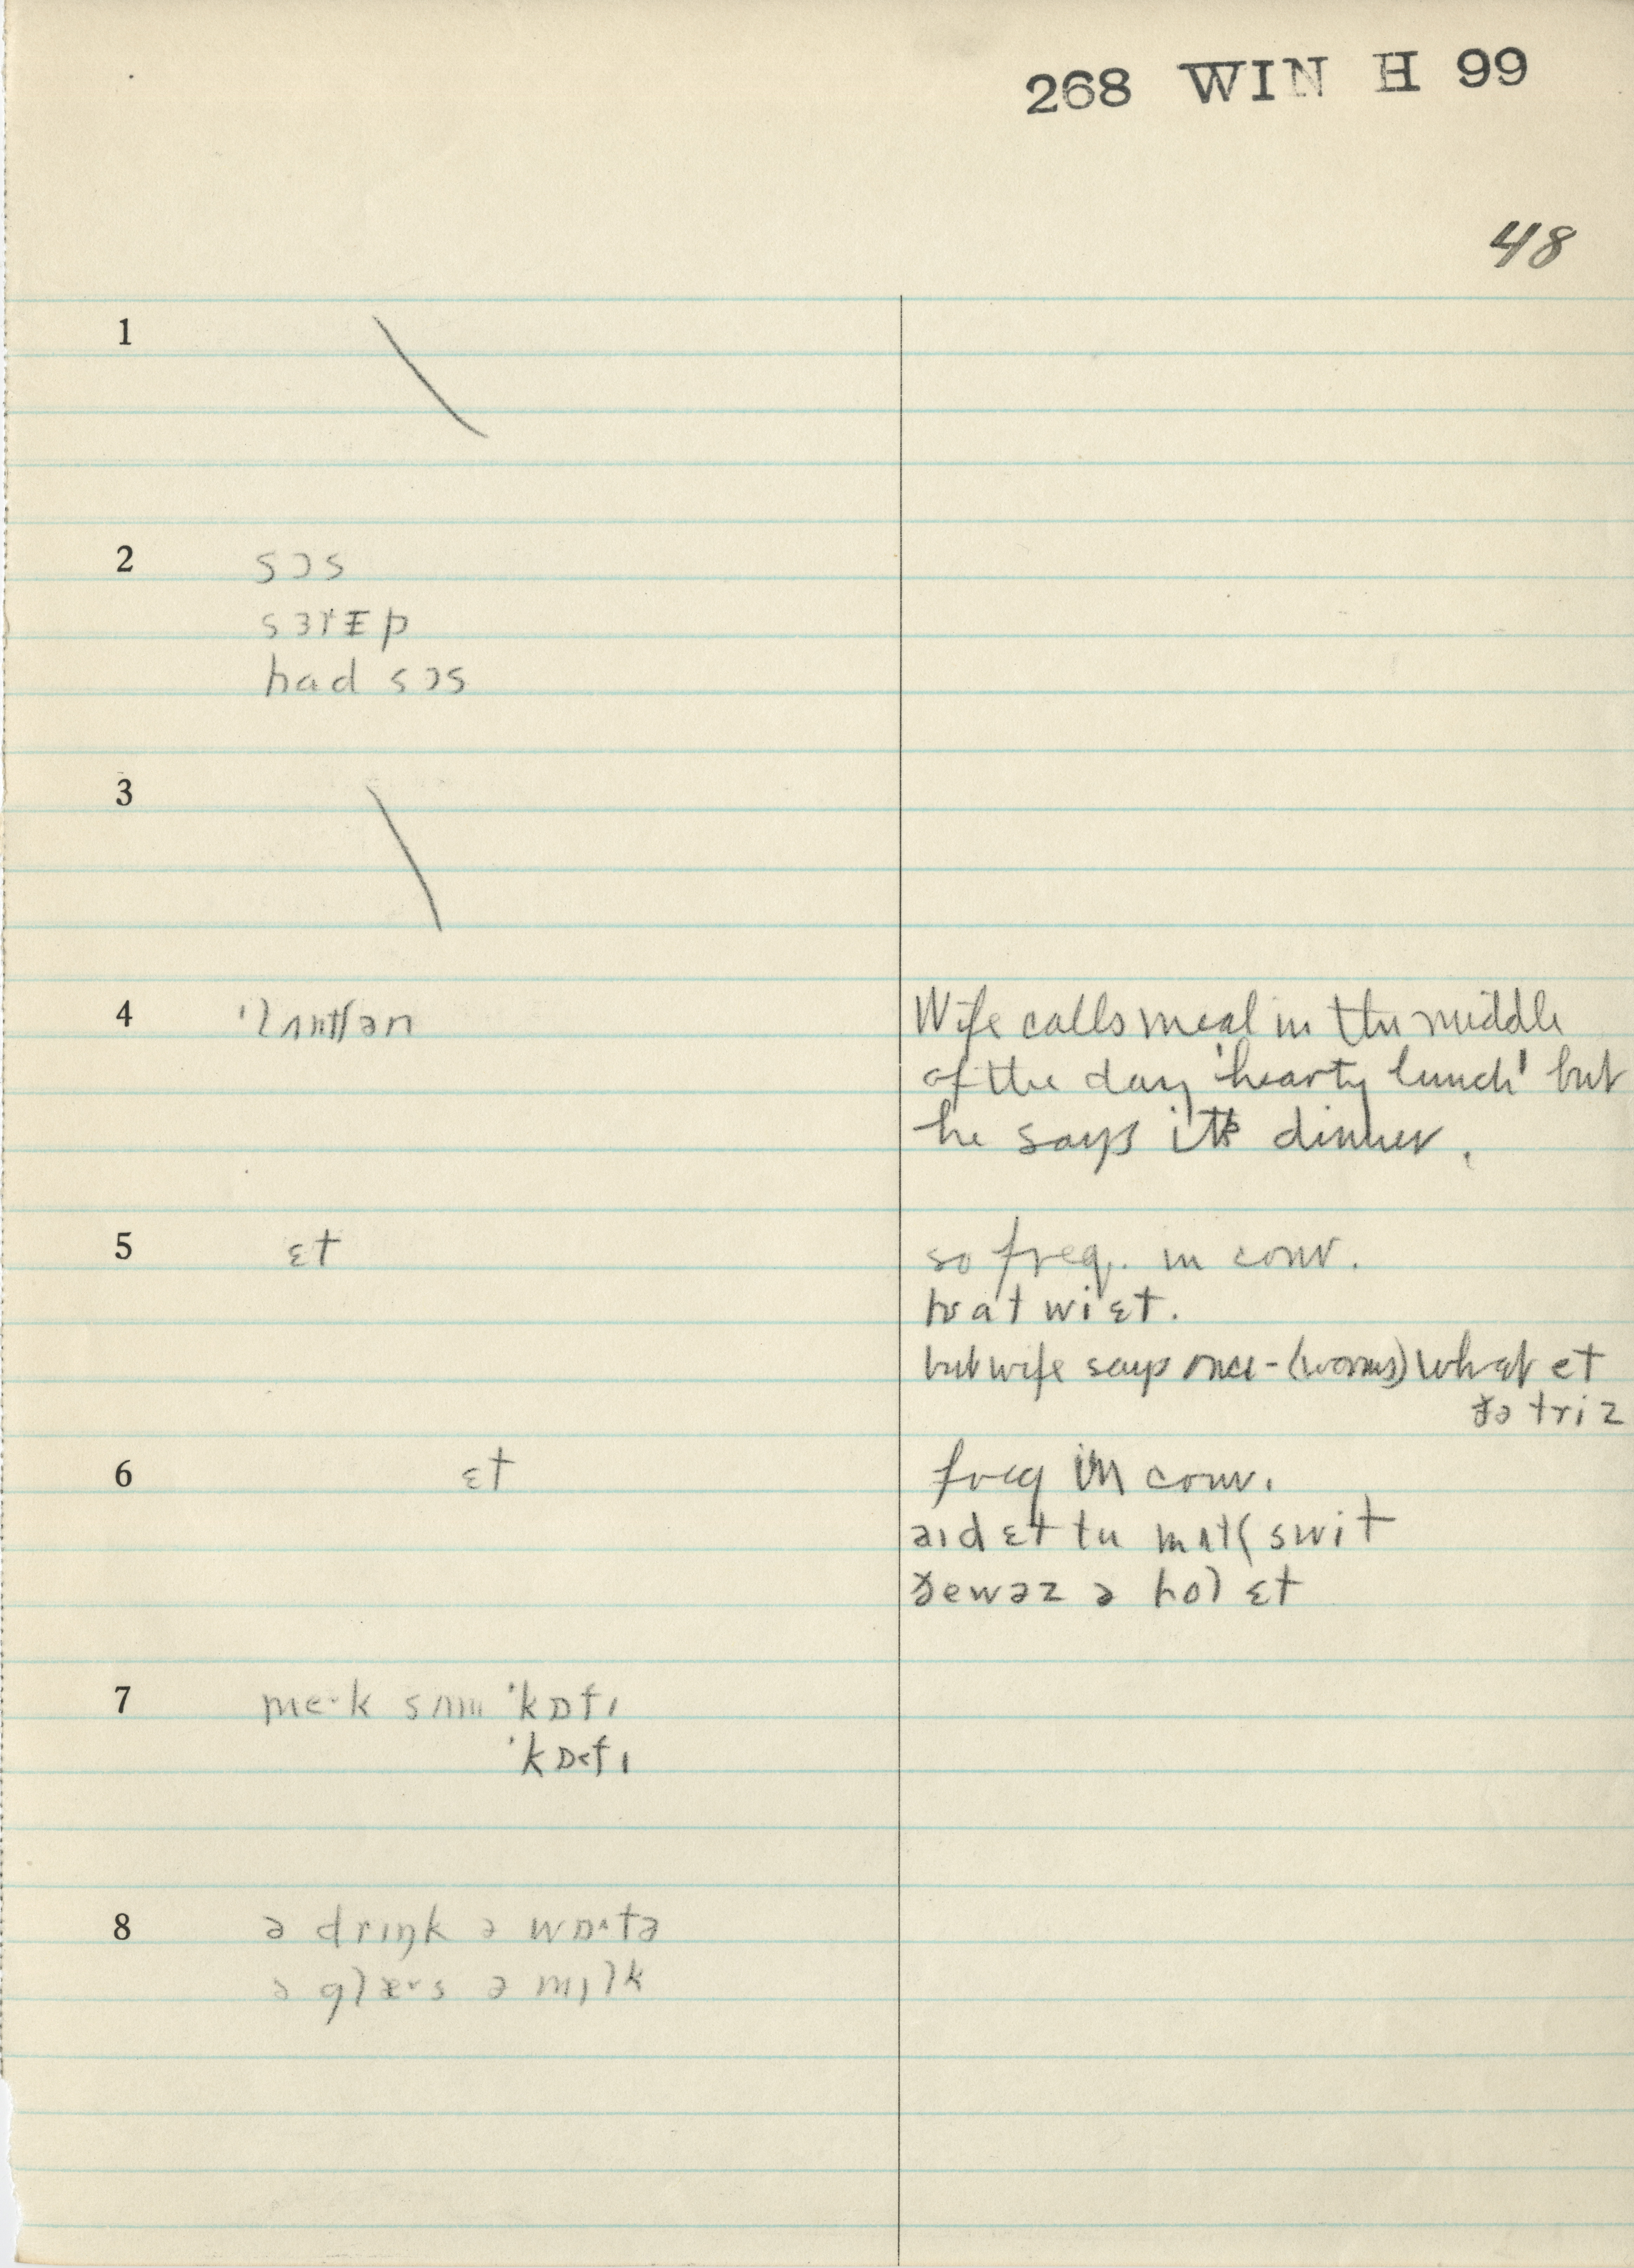 268 WIN H 99
48
1
2 sɔs
sɜrɪp
had sɔs
3
4 'lʌntʃən
Wife calls meal in the middle
of the day 'hearty lunch' but
he says it's dinner.
5 ɛt
so freq. in conv.
wi ɛt.
but wife says once - (worms) what et
ðə triz
6 ɛt
freq in conv.
aɪd ɛt tu mʌtʃ swit
ðe wəz ə hol ɛt
7 me·k sʌm 'kɒfɪ
'kɒ<fɪ
8 ə drɪŋk ə wɒ^tə
ə glæ˅s ə mɪlk